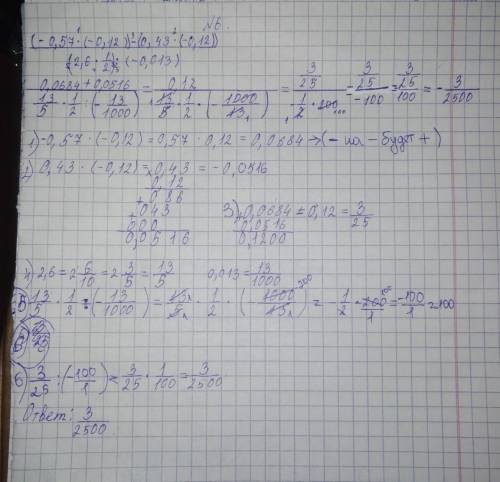 №6.
(-0,57 · (-0,12)) - (0,43 · (-0,12))
(2,6 · 1/2) : (-0,013)
0,0684 + 0,0516 / 13/5 · 1/2 · (-13/1000) = 0,12 / 13/5 · 1/2 · (-1000/13) = 3/25 / 1/2 · 200 = 3/25 / -100 = 3/25 / 100 = -3/2500
1) -0,57 · (-0,12) = 0,57 · 0,12 = 0,0684 → (- на - будет +)
2) 0,43 · (-0,12) = 0,43 = -0,0516
0,12
+ 086
043
000
0,0516
3) 0,0684 = 0,12 = 3/25
0,0516
0,1200
4) 2,6 = 2 6/10 = 2 3/5 = 13/5 0,013 = 13/1000
5) 13/5 · 1/2 : (-13/1000) = 13/5 · 1/2 · (-1000/13) = -1/2 · 200/1 = -100/1 = 100
6) 3/25 : (-100/1) = 3/25 · 1/100 = 3/2500
Ответ: 3/2500